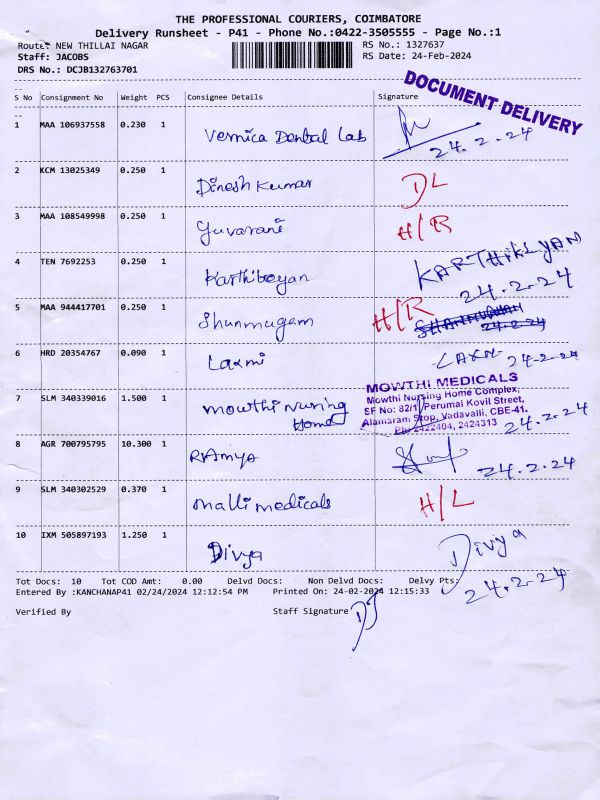 THE PROFESSIONAL COURIERS, COIMBATORE
Delivery Runsheet - P41 - Phone No.:0422-3505555 - Page No.:1
Route: NEW THILLAI NAGAR RS No.: 1327637
Staff: JACOBS RS Date: 24-Feb-2024
DRS No.: DCJB132763701
DOCUMENT DELIVERY
S No Consignment No Weight PCS Consignee Details Signature
1 MAA 106937558 0.230 1 Vernica Dental Lab 24.2.24
2 KCM 13025349 0.250 1 Dinesh Kumar DL
3 MAA 108549998 0.250 1 Yuvarani H/R
4 TEN 7692253 0.250 1 Karthikeyan KARTHIKEYAN
24.2.24
5 MAA 944417701 0.250 1 Shunmugam H/R
6 HRD 20354767 0.090 1 Laxmi 24-2-24
7 SLM 340339016 1.500 1 Mowthi Nursing Home
MOWTHI MEDICALS
Mowthi Nursing Home Complex,
SF No: 82/1, Perumal Kovil Street,
Alamaran Stop, Vadavalli, CBE-41.
Ph: 2422404, 2424313
24.2.24
8 AGR 700795795 10.300 1 RAmya 24.2.24
9 SLM 340302529 0.370 1 Malli medicals H/L
10 IXM 505897193 1.250 1 Divya Divya
24.2.24
Tot Docs: 10 Tot COD Amt: 0.00 Delvd Docs: Non Delvd Docs: Delvy Pts:
Entered By :KANCHANAP41 02/24/2024 12:12:54 PM Printed On: 24-02-2024 12:15:33
Verified By Staff Signature